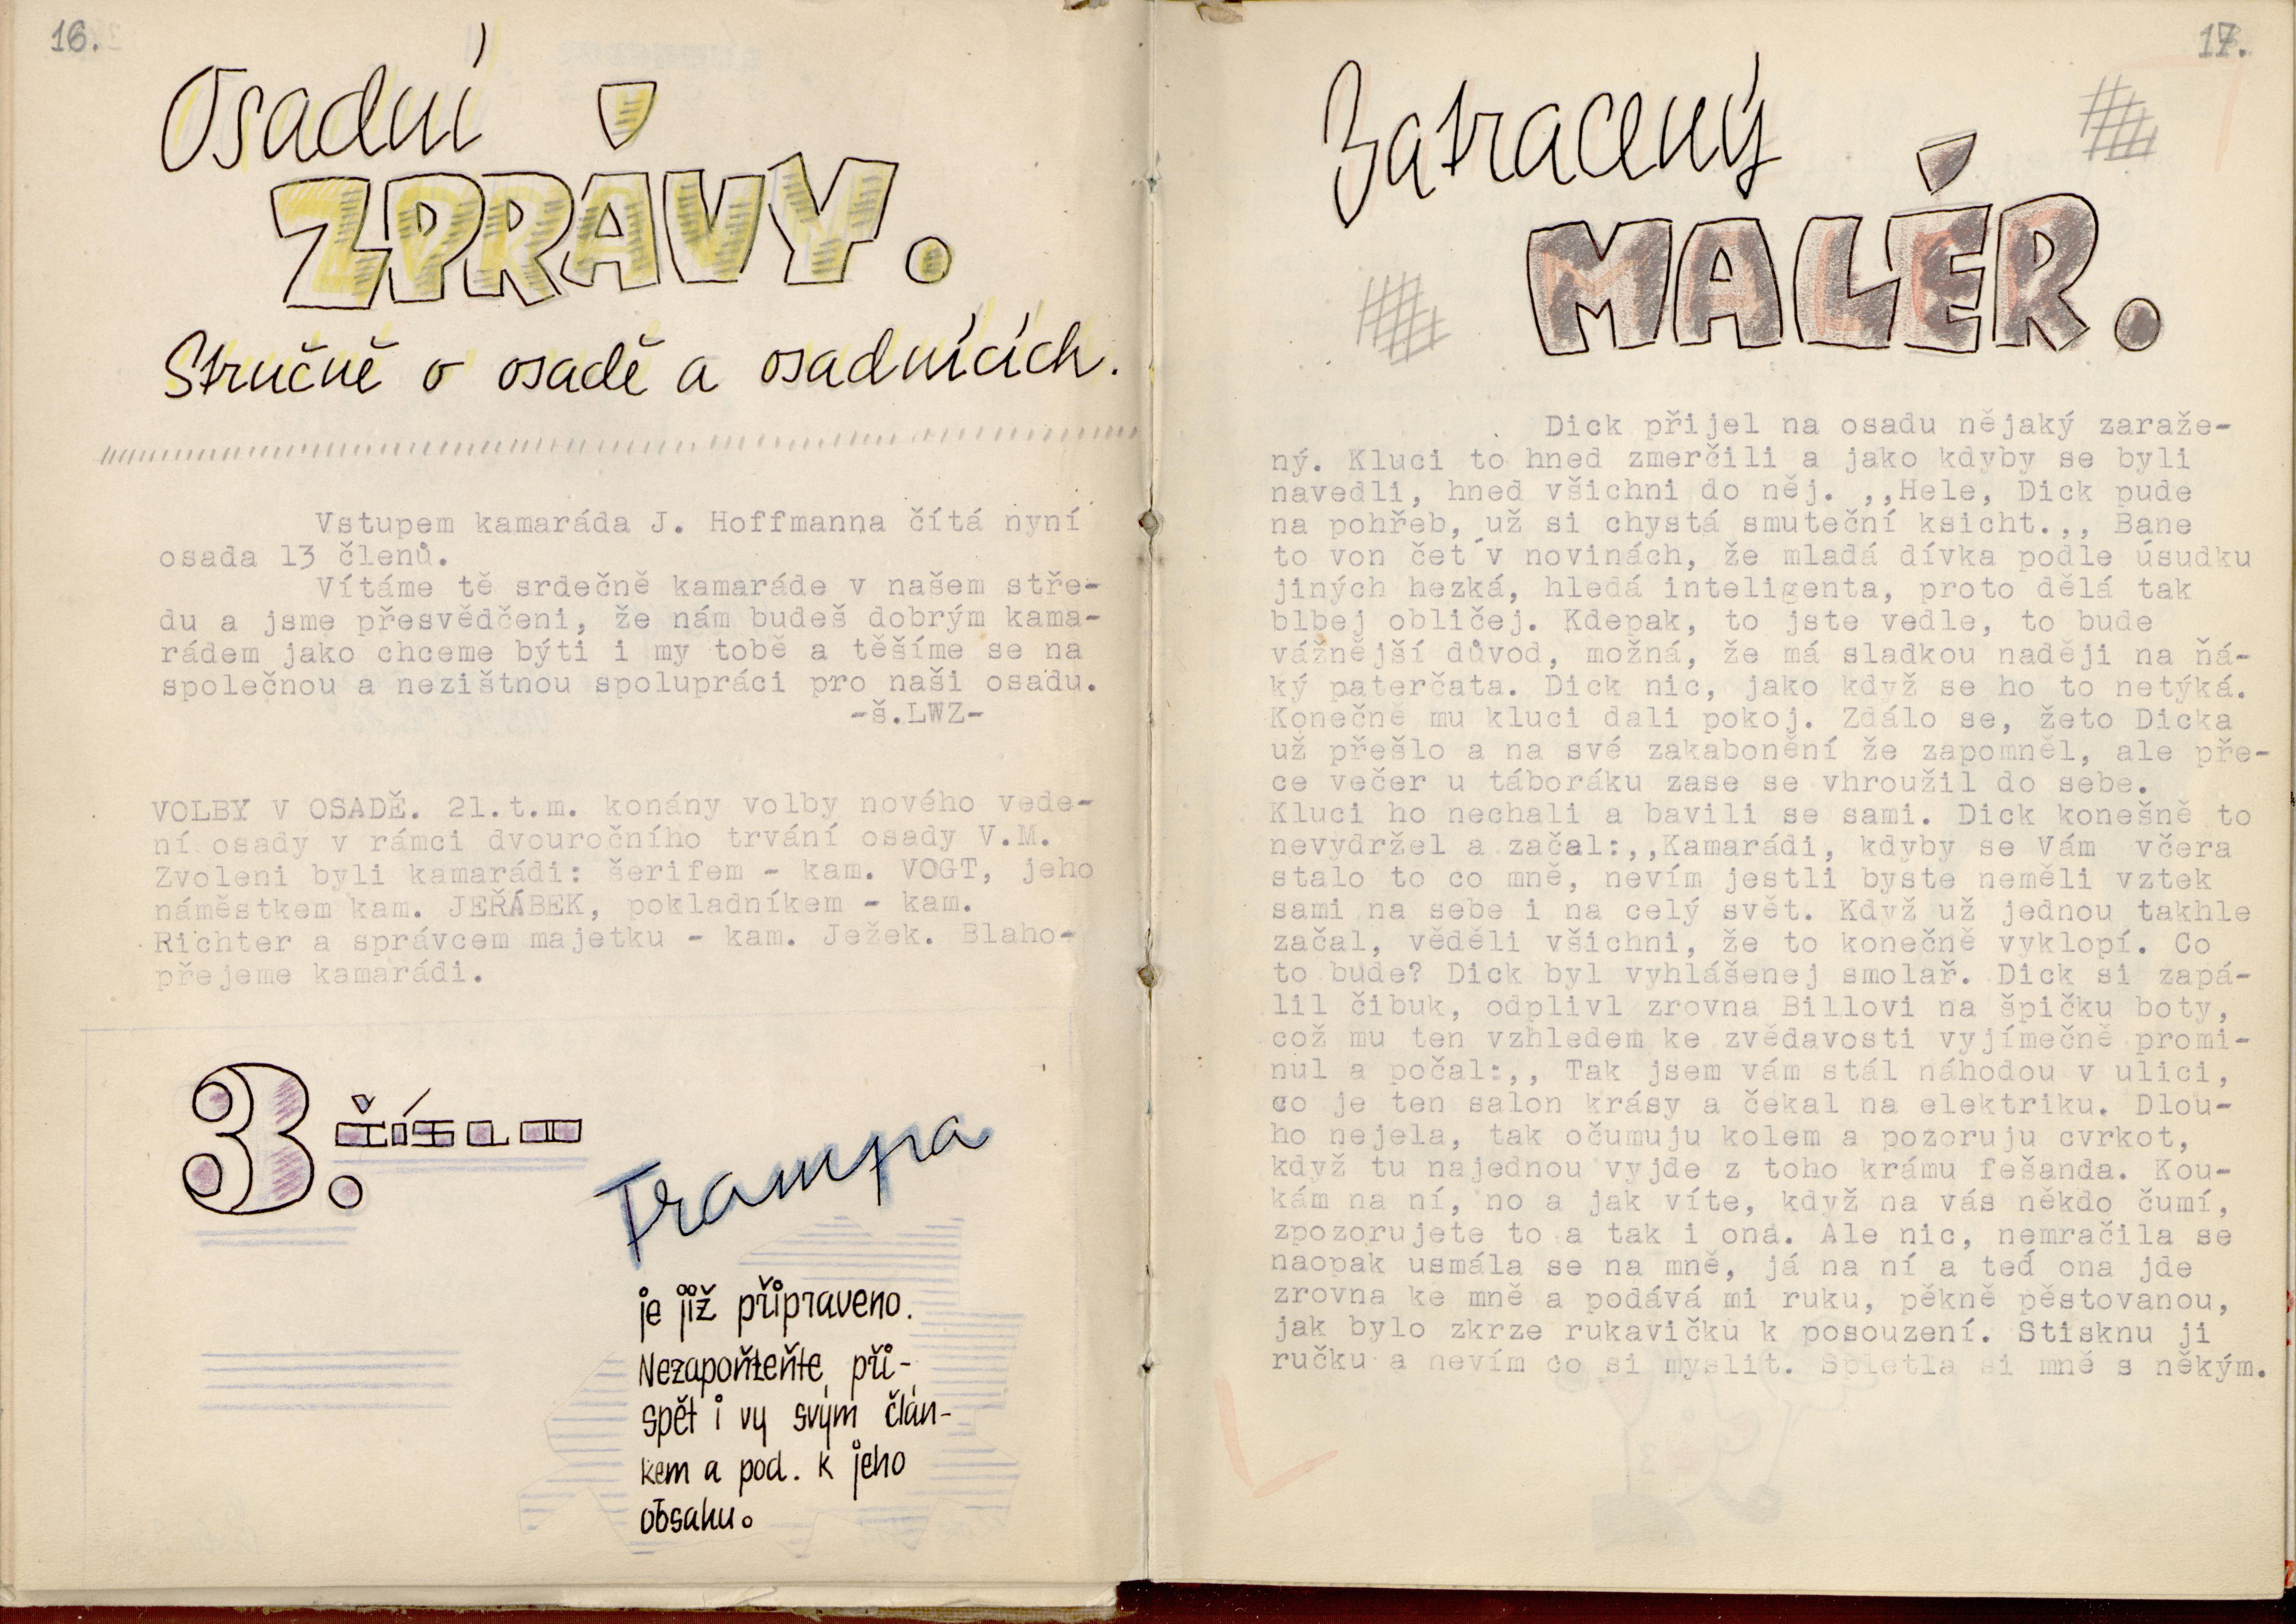 16.
Osadní
ZPRÁVY.
Stručně o osadě a osadnících.
Vstupem kamaráda J. Hoffmanna čítá nyní
osada 13 členů.
Vítáme tě srdečně kamaráde v našem stře-
du a jsme přesvědčeni, že nám budeš dobrým kama-
rádem jako chceme býti i my tobě a těšíme se na
společnou a nezištnou spolupráci pro naši osadu.
-š.LWZ-
VOLBY V OSADĚ. 21.t.m. konány volby nového vede-
ní osady v rámci dvouročního trvání osady V.M.
Zvoleni byli kamarádi: šerifem - kam. VOGT, jeho
náměstkem kam. JEŘÁBEK, pokladníkem - kam.
Richter a správcem majetku - kam. Ježek. Blaho-
přejeme kamarádi.
3. číslo
Trampa
je již připraveno.
Nezapoňteňte při-
spět i vy svým člán-
kem a pod. k jeho
obsahu.
17.
Zatracený
MALÉR.
Dick přijel na osadu nějaký zaraže-
ný. Kluci to hned zmerčili a jako kdyby se byli
navedli, hned všichni do něj. ,,Hele, Dick pude
na pohřeb, už si chystá smuteční ksicht.,, Bane
to von čet v novinách, že mladá dívka podle úsudku
jiných hezká, hledá inteligenta, proto dělá tak
blbej obličej. Kdepak, to jste vedle, to bude
vážnější důvod, možná, že má sladkou naději na ňá-
ký paterčata. Dick nic, jako když se ho to netýká.
Konečně mu kluci dali pokoj. Zdálo se, žeto Dicka
už přešlo a na své zakabonění že zapomněl, ale pře-
ce večer u táboráku zase se vhroužil do sebe.
Kluci ho nechali a bavili se sami. Dick konešně to
nevydržel a začal:,,Kamarádi, kdyby se Vám včera
stalo to co mně, nevím jestli byste neměli vztek
sami na sebe i na celý svět. Když už jednou takhle
začal, věděli všichni, že to konečně vyklopí. Co
to bude? Dick byl vyhlášenej smolař. Dick si zapá-
lil čibuk, odplivl zrovna Billovi na špičku boty,
což mu ten vzhledem ke zvědavosti vyjímečně promi-
nul a počal:,, Tak jsem vám stál náhodou v ulici,
co je ten salon krásy a čekal na elektriku. Dlou-
ho nejela, tak očumuju kolem a pozoruju cvrkot,
když tu najednou vyjde z toho krámu fešanda. Kou-
kám na ní, no a jak víte, když na vás někdo čumí,
zpozorujete to a tak i ona. Ale nic, nemračila se
naopak usmála se na mně, já na ní a teď ona jde
zrovna ke mně a podává mi ruku, pěkně pěstovanou,
jak bylo zkrze rukavičku k posouzení. Stisknu ji
ručku a nevím co si myslit. Spletla si mně s někým.